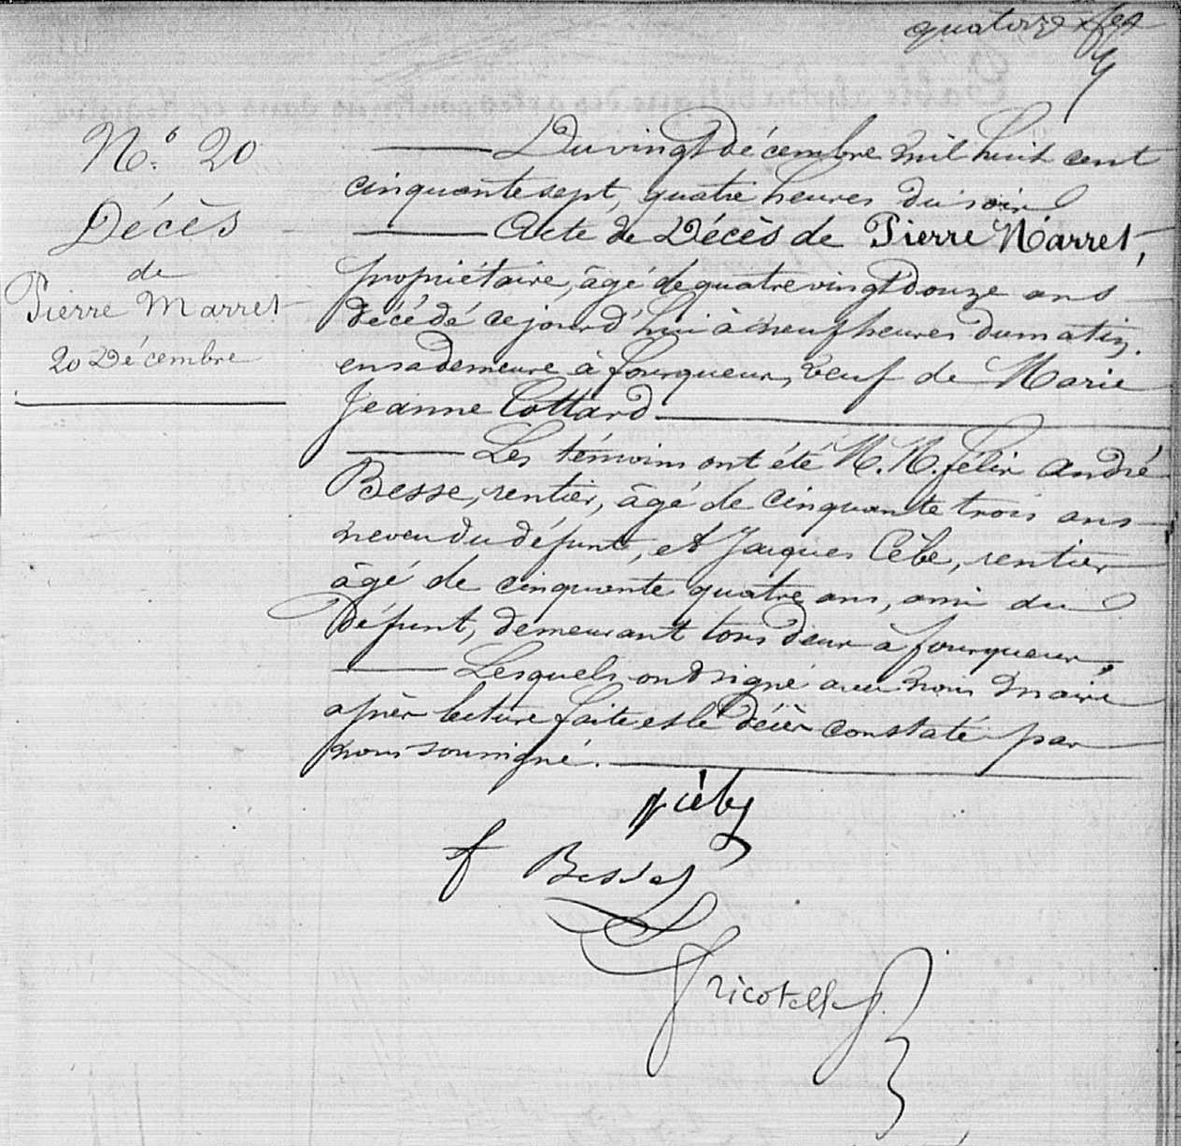 quatorze
N.° 20
Décès
de
Pierre Marret
20 Décembre
Du vingt décembre mil huit cent
cinquante sept, quatre heures du soir
Acte de Décès de Pierre Marret,
propriétaire, âgé de quatre vingt douze ans
décédé ce jourd'hui à neuf heures du matin
en sa demeure à fourqueux, veuf de Marie
Jeanne Cottard
Les témoins ont été M.M. félix André
Besse, rentier, âgé de cinquante trois ans
neveu du défunt, et Jacques Cèbe, rentier
âgé de cinquante quatre ans, ami du
Défunt, demeurant tous deux à fourqueux,
Lesquels ont signé avec nous maire
après lecture faite et le décès constaté par
nous soussigné.
f Besse